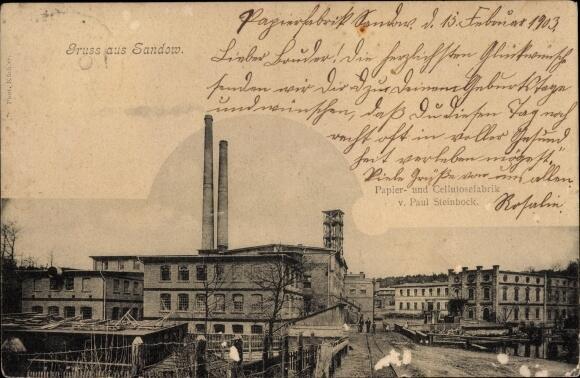 Papierfabrik Sandow d. 15. Februar 1903.
Gruss aus Sandow.
Lieber Bruder! Die herzlichsten Glückwünsche
senden wir Dir zu Deinem Geburtstage
und wünschen, daß Du diesen Tag noch
recht oft in voller Gesund
heit verleben mögest.
Viele Grüße von uns allen
Rosalie.
Papier- und Cellulosefabrik
v. Paul Steinbock.